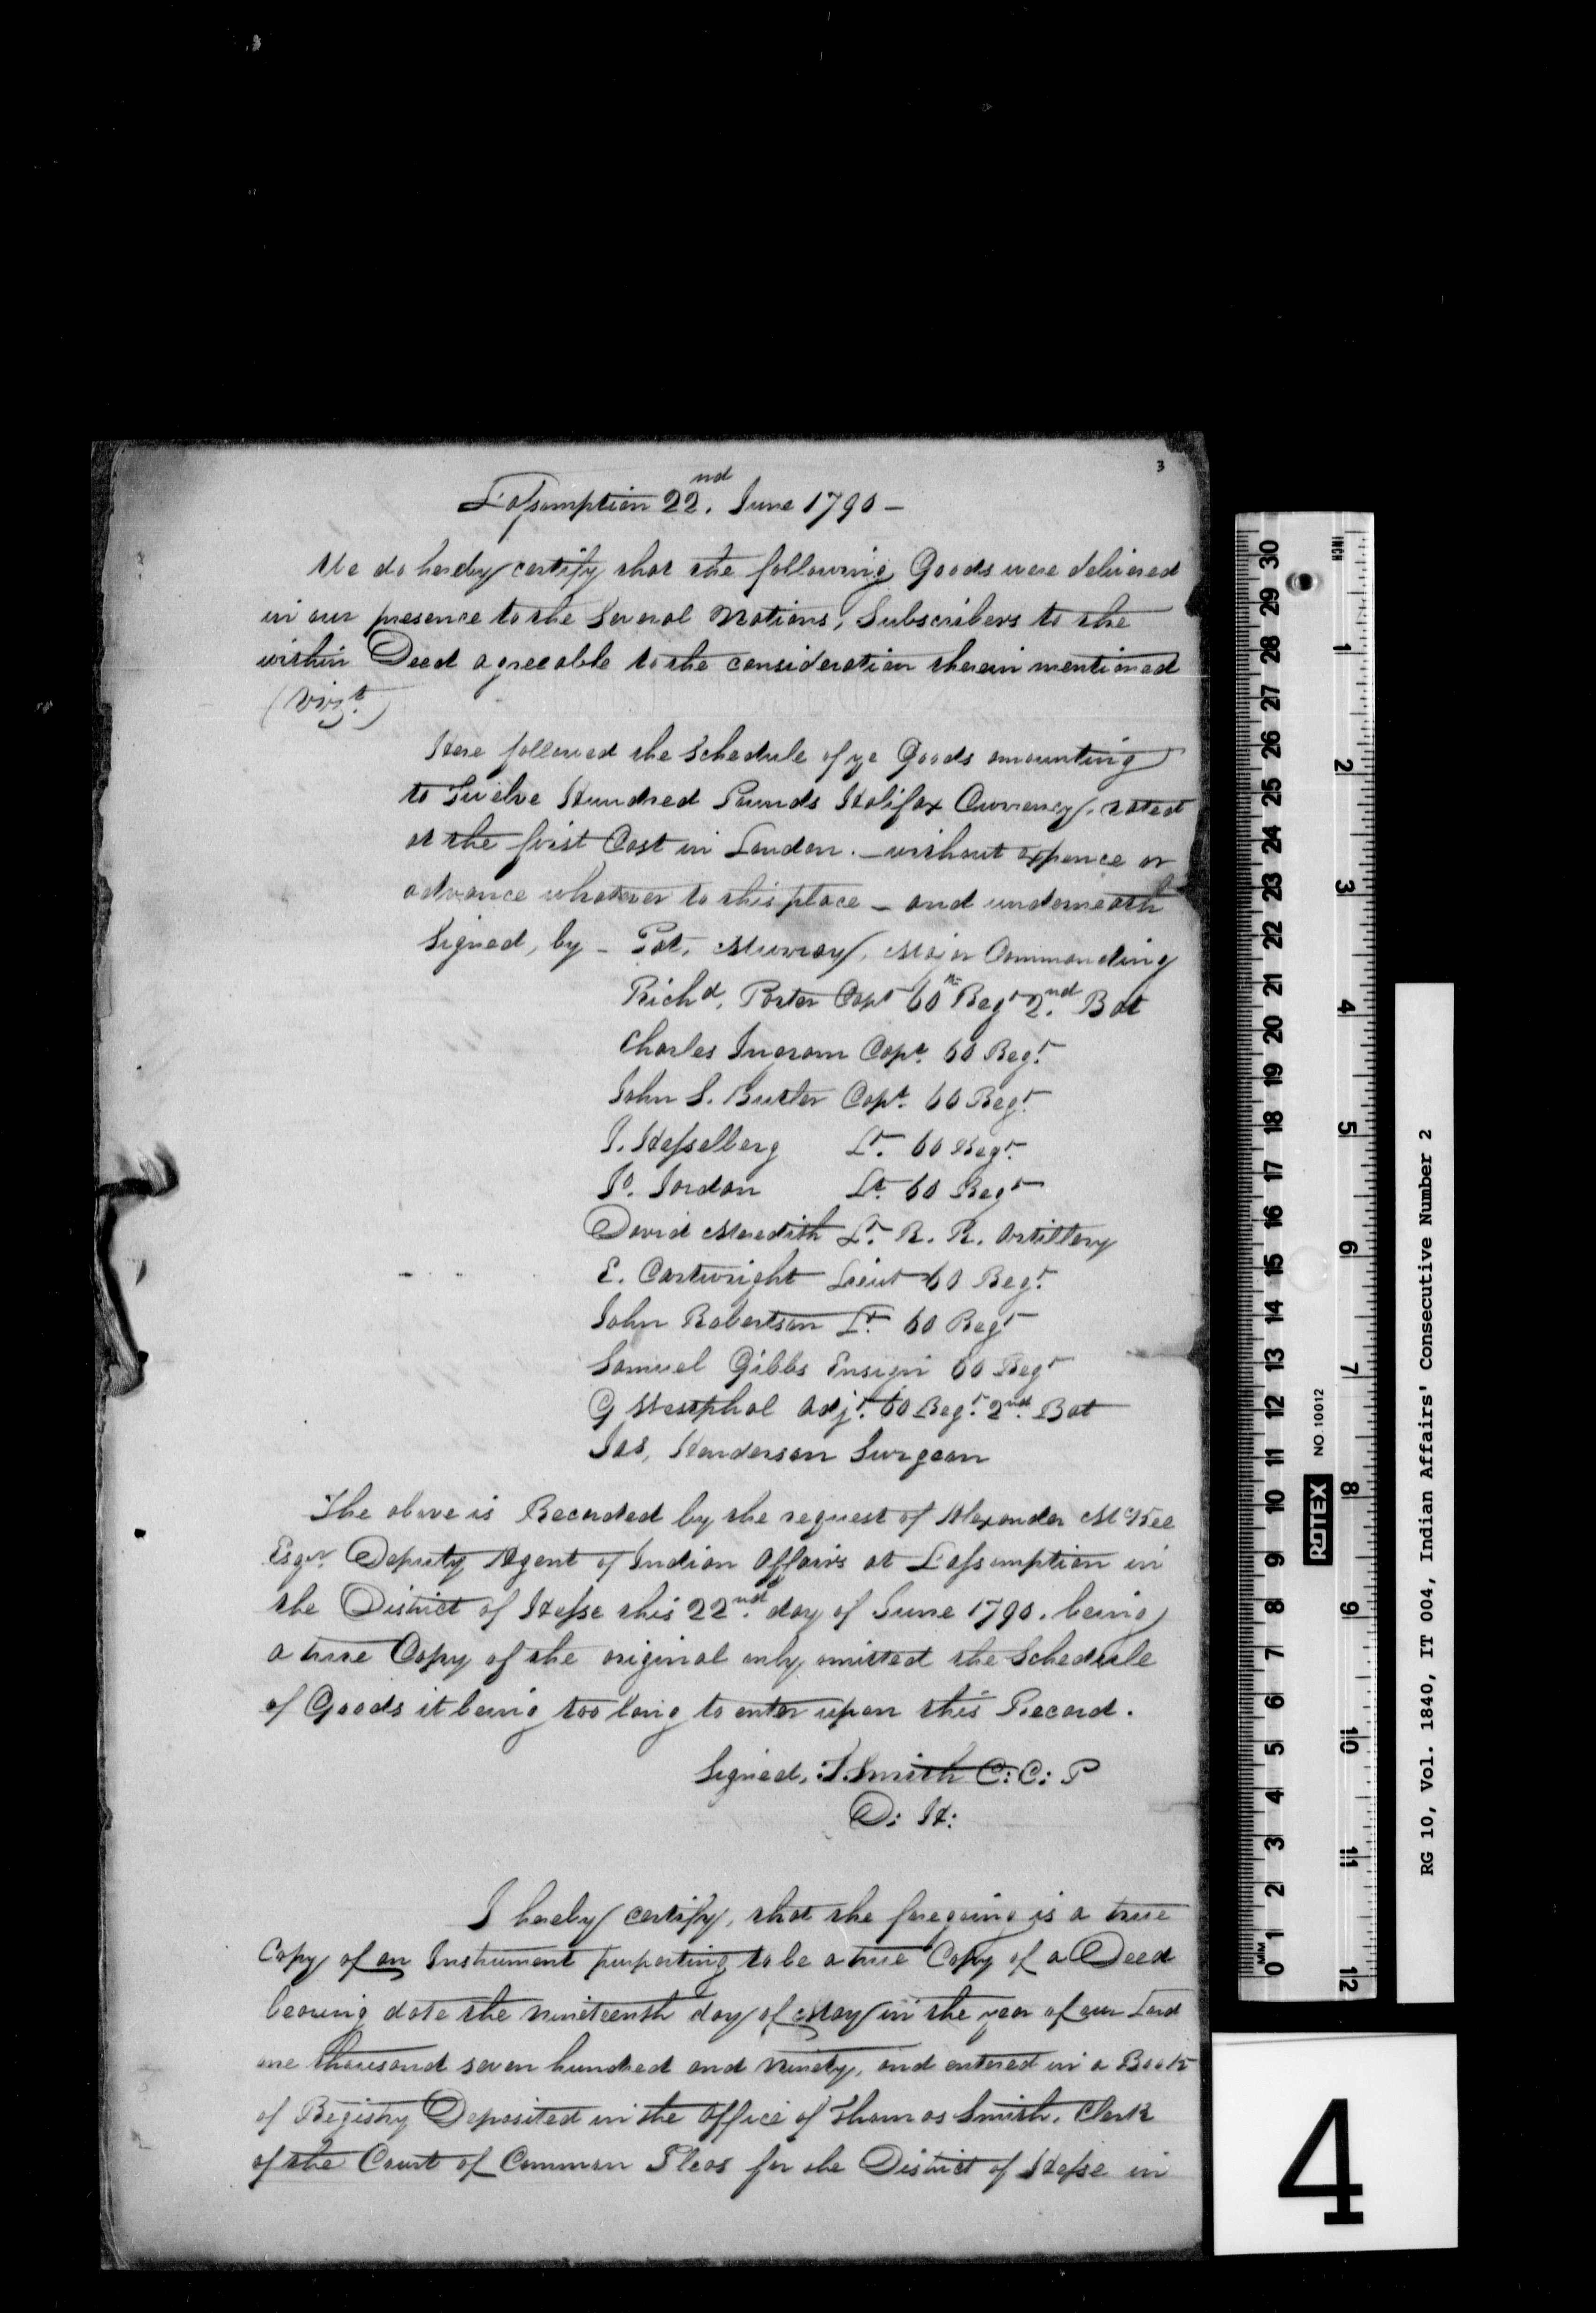 3
L'Assumption 22nd. June 1790 —
We do hereby certify that the following Goods were delivered
in our presence to the Several Nations, Subscribers to the
within Deed agreeable to the consideration therein mentioned
(Vizt.)
Here followed the Schedule of ye Goods amounting
to Twelve Hundred Pounds Halifax Currency, rated
at the first Cost in London. — without expence or
advance whatever to this place — and underneath
Signed, by — Pat. Murray, Major Commanding
Richd. Porter Capt 60th Regt 2nd. Bat
Charles Ingram Capt. 60 Regt.
John S. Butler Capt. 60 Regt.
I. Hesselberg Lt. 60 Regt.
Jo. Jordan Lt. 60 Regt
David Meredith Lt. R. R. Artillery
E. Cartwright Lieut 60 Regt.
John Robertson Lt. 60 Regt
Samuel Gibbs Ensign 60 Regt
G Westphal Adjt. 60 Regt. 2nd. Bat
Jas, Henderson Surgeon
The above is Recorded by the request of Alexander McKee
Esqr. Deputy Agent of Indian Affairs at L'Assumption in
the District of Hesse this 22nd. day of June 1790. being
a true Copy of the original only omitted the Schedule
of Goods it being too long to enter upon this Record.
Signed, T. Smith C: C: P
D: H:
I hereby certify, that the foregoing is a true
Copy of an Instrument purporting to be a true Copy of a Deed
bearing date the nineteenth day of May in the year of our Lord
one thousand seven hundred and ninety, and entered in a Book
of Registry Deposited in the Office of Thomas Smith, Clerk
of the Court of Common Pleas for the District of Hesse in
RG 10, Vol. 1840, IT 004, Indian Affairs' Consecutive Number 2
INCH
1 2 3 4 5 6 7 8 9 10 11 12
30 29 28 27 26 25 24 23 22 21 20 19 18 17 16 15 14 13 12 11 10 9 8 7 6 5 4 3 2 1 0
MM
ROTEX NO.10012
4